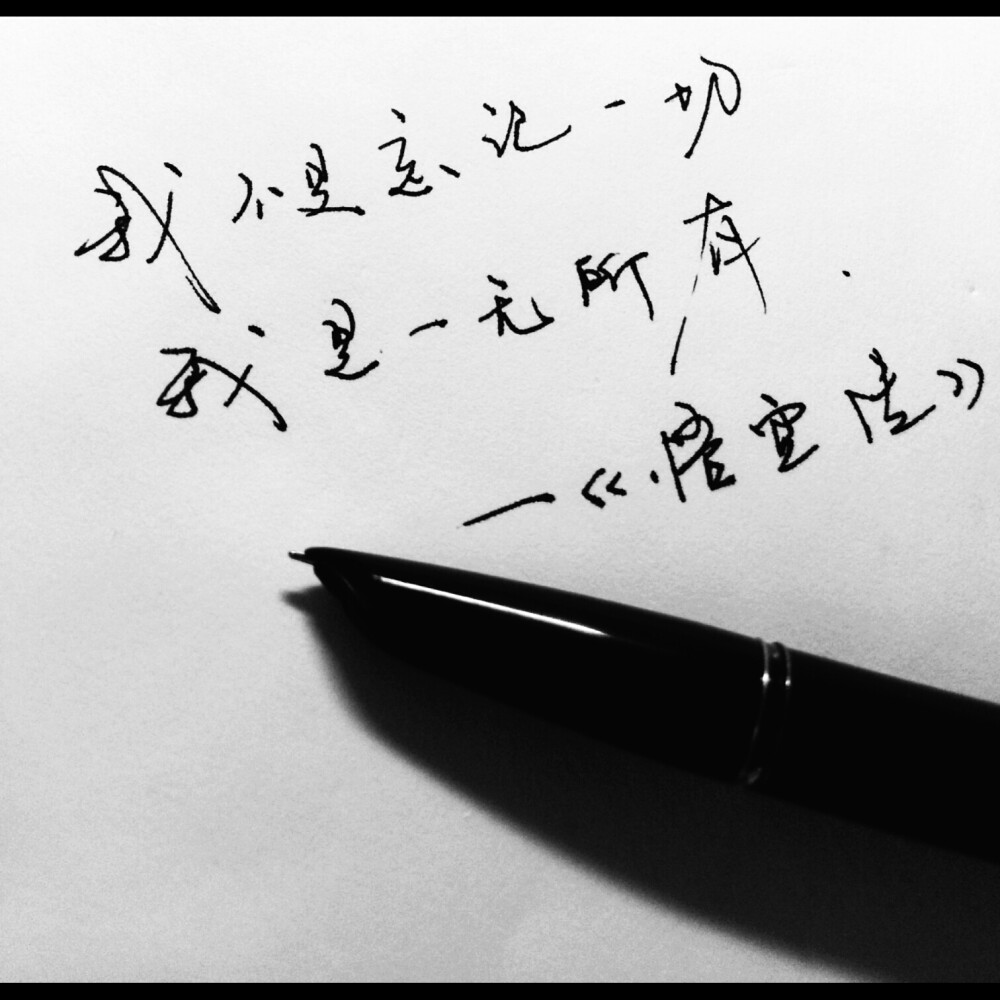 我不是忘记一切
我是一无所有.
—《悟空传》